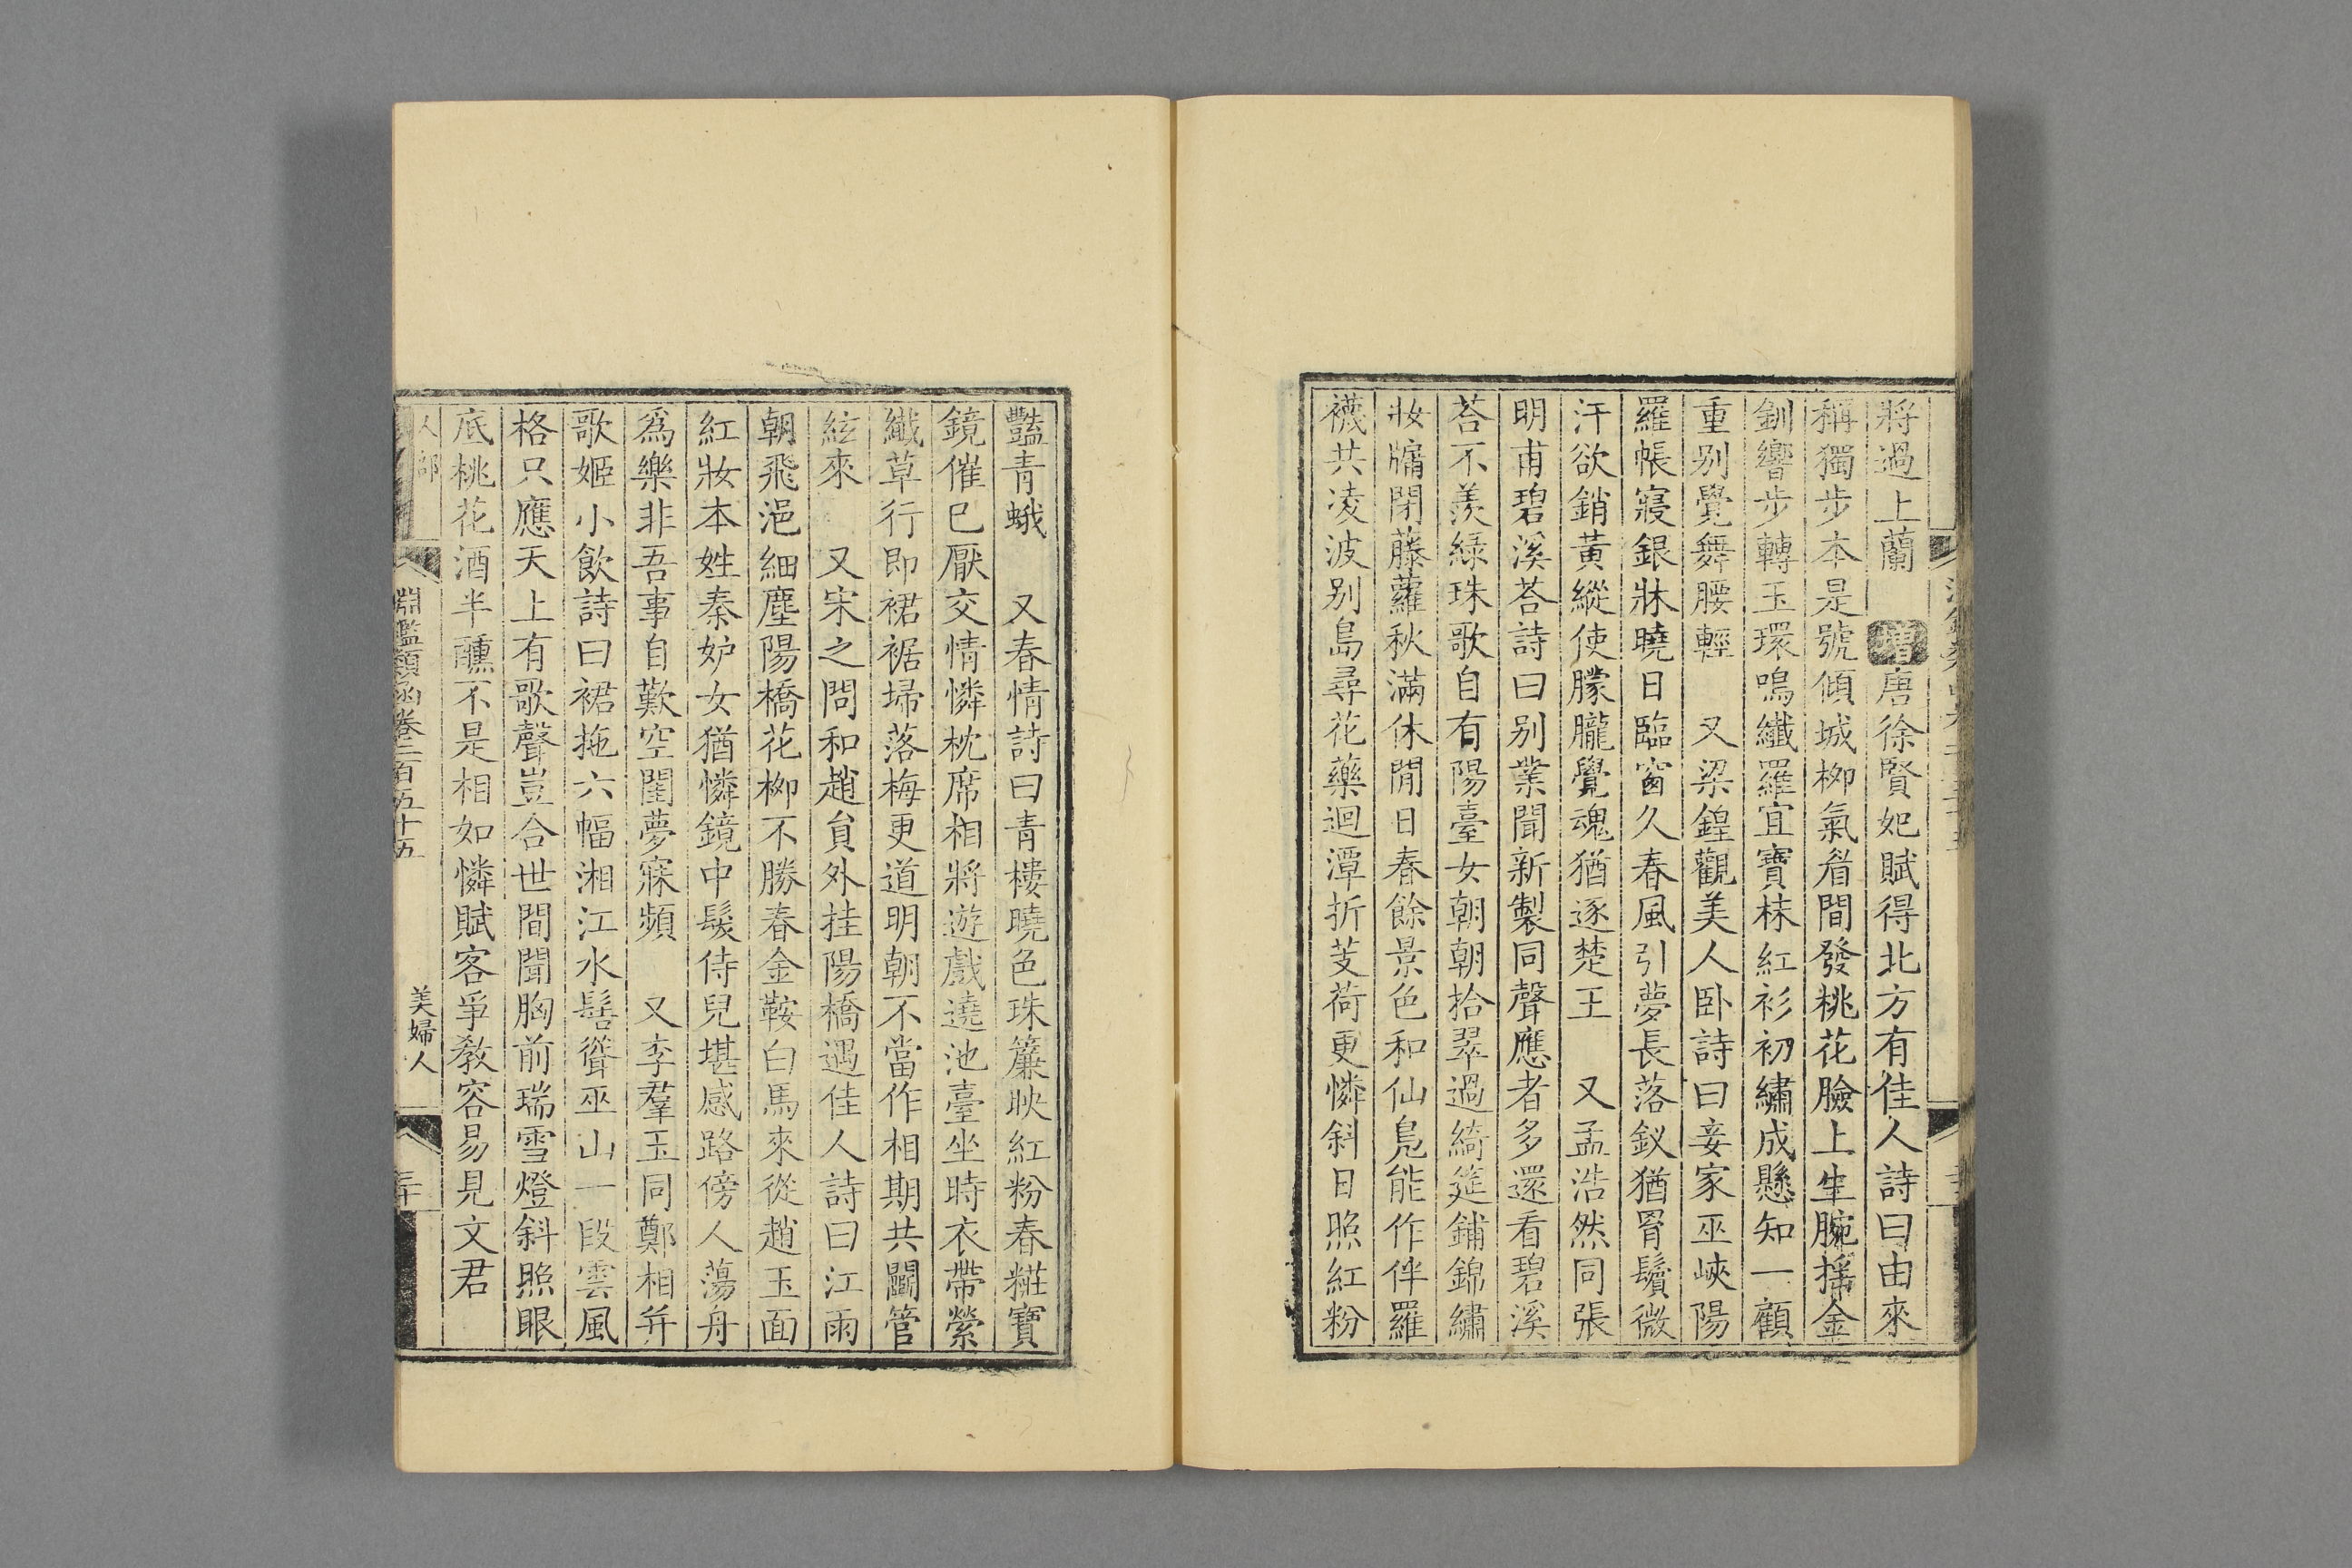 將過上蘭　增唐徐賢妃賦得北方有佳人詩曰由來
稱獨步本是號傾城柳氣眉間發桃花臉上生腕搖金
釧響步轉玉環鳴纖羅宜寶袜紅衫初繡成懸知一顧
重别覺舞腰輕　又梁鍠觀美人卧詩曰妾家巫峽陽
羅帳寢銀牀曉日臨窗久春風引夢長落釵猶罥鬢微
汗欲銷黃縱使朦朧覺魂猶逐楚王　又孟浩然同張
明甫碧溪荅詩曰别業聞新製同聲應者多還看碧溪
荅不羨綠珠歌自有陽臺女朝朝拾翠過綺筵鋪錦繡
妝牖閉藤蘿秋滿休閒日春餘景色和仙鳧能作伴羅
襪共凌波别島尋花藥迴潭折芰荷更憐斜日照紅粉
豔青蛾　又春情詩曰青樓曉色珠簾映紅粉春糚寶
鏡催巳厭交情憐枕席相將遊戲遶池臺坐時衣帶縈
纖草行即裙裾埽落梅更道明朝不當作相期共鬬管
絃來　又宋之問和趙貟外挂陽橋遇佳人詩曰江雨
朝飛浥細塵陽橋花柳不勝春金鞍白馬來從趙玉面
紅妝本姓秦妒女猶憐鏡中髮侍兒堪感路傍人蕩舟
爲樂非吾事自歎空閨夢寐頻　又李羣玉同鄭相并
歌姬小飲詩曰裙拖六幅湘江水髻聳巫山一段雲風
格只應天上有歌聲豈合世間聞胸前瑞雪燈斜照眼
底桃花酒半醺不是相如憐賦客爭敎容易見文君
人部
淵鑑類函卷二百五十五
美婦人